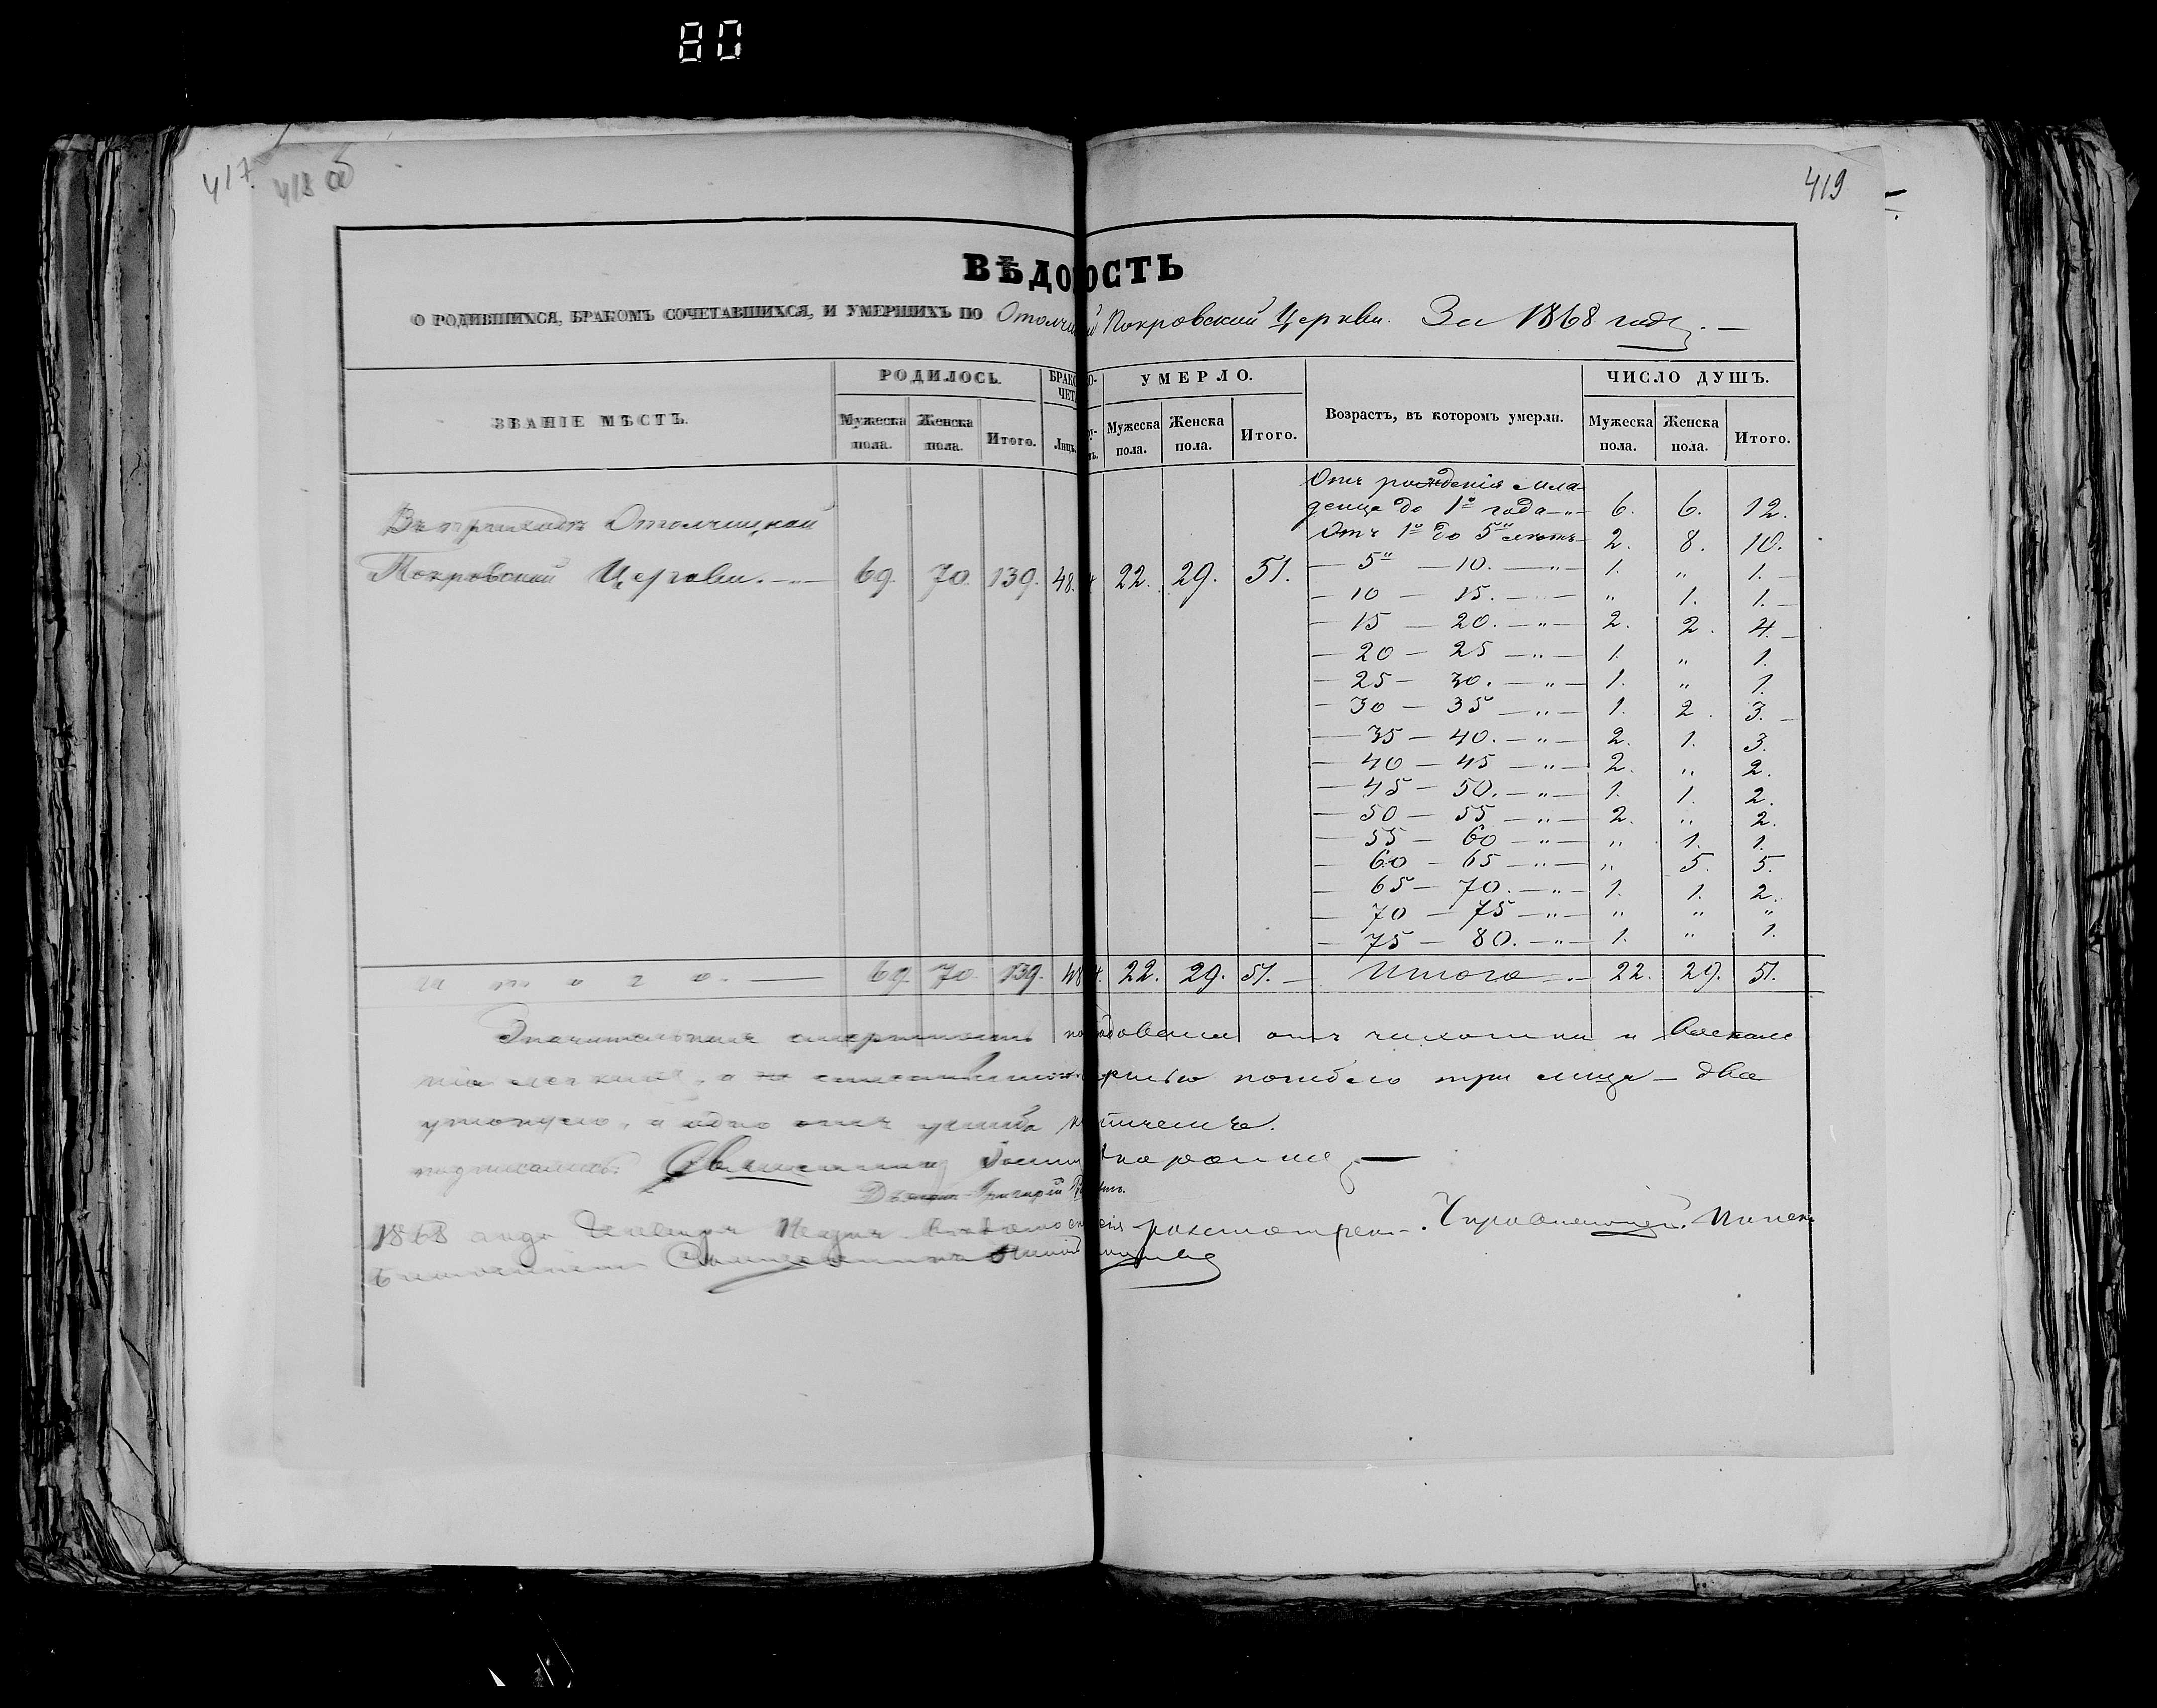 80
417.
418 об
419
ВѢДО ОСТЬ
О РОДИВШИХСЯ, БРАКОМЪ СОЧЕТАВШИХСЯ, И УМЕРШИХЪ ПО Отолчи Покровской Церкви. За 1868 годъ. —
ЗВАНІЕ МѢСТЪ. РОДИЛОСЬ. БРАКО О- ЧЕТ УМЕРЛО. Возрастъ, въ которомъ умерли. ЧИСЛО ДУШЪ.
Мужеска пола. Женска пола. Итого. Лицъ. Мужеска пола. Женска пола. Итого. Мужеска пола. Женска пола. Итого.
Отъ рожденія мла-
денца до 1го года —„— 6. 6. 12.
Въ приходѣ Отолчицкой
Отъ 1го до 5ти лѣтъ — 2. 8. 10.
Покровской Церкви. —„— 69. 70. 139. 48. 22. 29. 51.
— 5ти — 10. —„— 1. „ 1. —
— 10 — 15. —„— „ 1. 1. —
— 15 — 20. —„— 2. 2. 4. —
— 20 — 25 —„— 1. „ 1.
— 25 — 30. —„— 1. „ 1.
— 30 — 35 —„— 1. 2. 3. —
— 35 — 40. —„— 2. 1. 3.
— 40 — 45 —„— 2. „ 2.
— 45 — 50. —„— 1. 1. 2.
— 50 — 55 —„— 2. „ 2.
— 55 — 60 —„— „ 1. 1.
— 60 — 65 —„— „ 5. 5.
— 65 — 70. —„— 1. 1. 2.
— 70 — 75 —„— „ „ „
— 75 — 80. —„— 1. „ 1.
И т о г о. — 69. 70. 139. 48 22. 29. 51. — Итого —.— 22. 29. 51.
Значительная смертность отъ чихотки и воспале
нія легкихъ, а погибло три лица — два
утонуло, а одно отъ ушиба
подписались: Священникъ
Григорій
1868 года разсмотрен